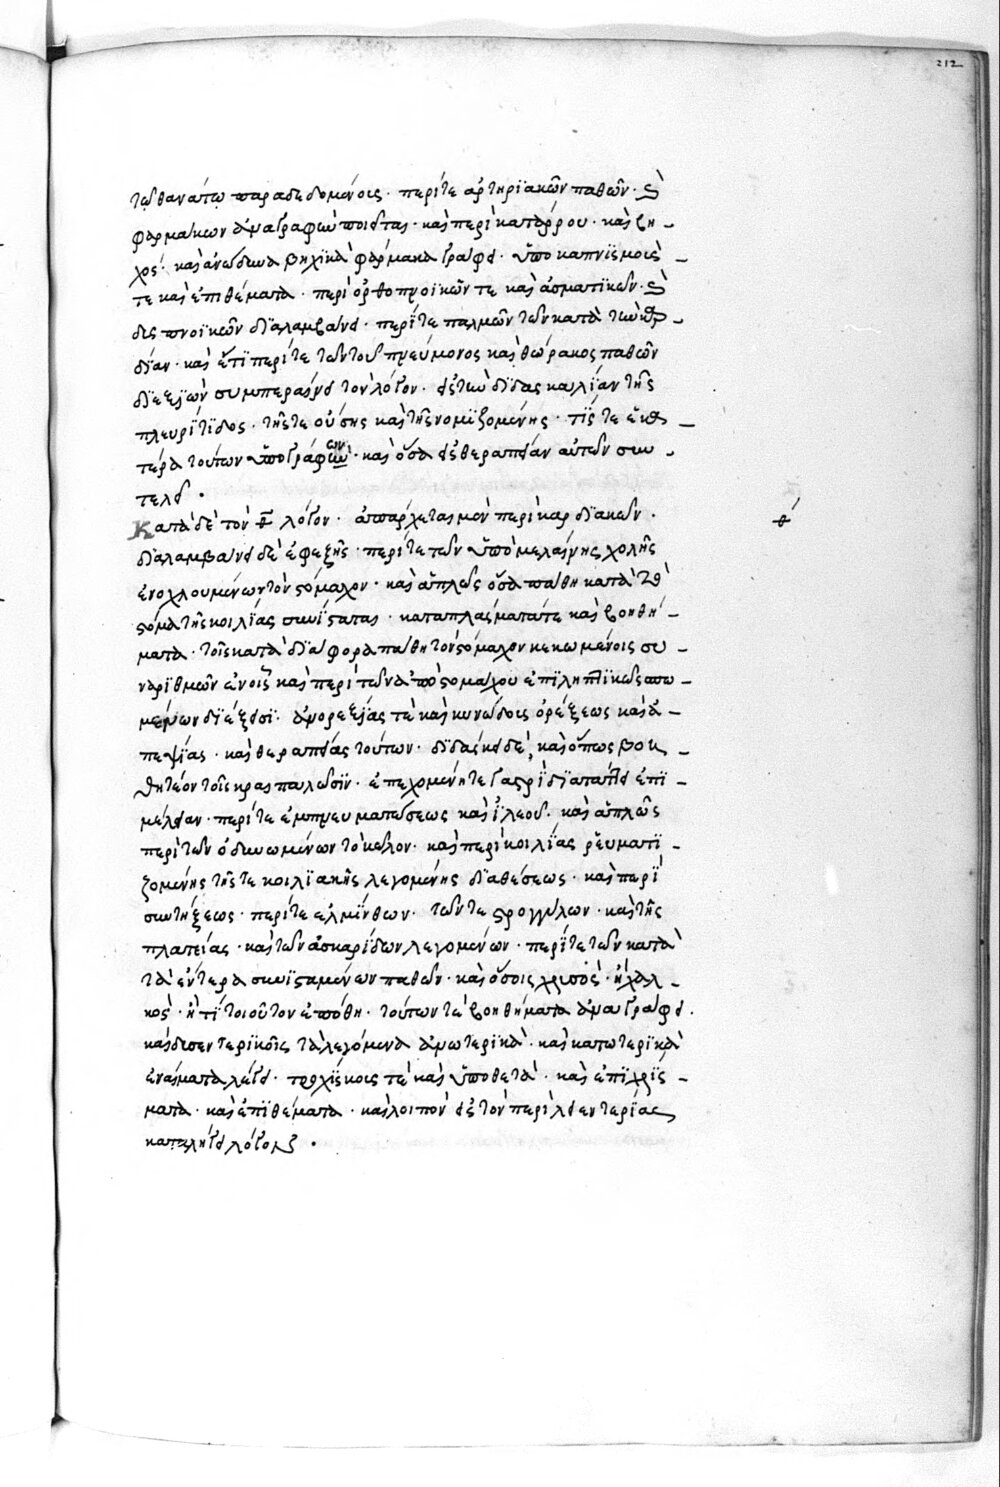 212
τῶ θανάτω παραδεδομένοις · περί τε ἀρτηριακῶν παθῶν · καὶ
φαρμάκων ἀναγραφὴν ποιεῖται · καὶ περὶ κατάρρου · καὶ βη
χός · καὶ ἀνώδυνα βηχικὰ φάρμακα γράφει · ὑποκαπνισμούς
τε καὶ ἐπιθέματα · περὶ ὀρθοπνοϊκῶν τε καὶ ἀσματικῶν · καὶ
δυσπνοϊκῶν διαλαμβάνει · περί τε παλμῶν τῶν κατὰ τὴν καρ
δίαν · καὶ ἔτι περί τε τῶν τοῦ πνεύμονος καὶ θώρακος παθῶν
διεξιὼν συμπεραίνει τὸν λόγον · εἰς τὴν διδασκαλίαν τῆς
πλευρίτιδος · τῆς τε οὔσης καὶ τῆς νομιζομένης · τίς τε ἑκα
τέρα τούτων ὑπογράφων · καὶ ὅσα εἰς θεραπείαν αὐτῶν συν
τελεῖ ·
Κατὰ δὲ τὸν θ λόγον · ἀπάρχεται μὲν περὶ καρδιακῶν · θ′
διαλαμβάνει δὲ ἐφεξῆς · περί τε τῶν ὑπὸ μελαίνης χολῆς
ἐνοχλουμένων τὸν στόμαχον · καὶ ἁπλῶς ὅσα πάθη κατὰ τὸ
στόμα τῆς κοιλίας συνίσταται · καταπλάσματά τε καὶ βοηθή
ματα · τοῖς κατὰ διάφορα πάθη τὸν στόμαχον κεκωμένοις συ
ναριθμῶν ἐνοις καὶ περὶ τῶν ἀπὸ στομάχου ἐπιληπτικῶς σπω
μένων διέξεισι · ἀνορεξίας τε καὶ κυνώδους ὀρέξεως καὶ ἀ
πεψίας · καὶ θεραπείας τούτων · διδάσκει δὲ, καὶ ὅπως βοη
θητέον τοῖς κραιπαλῶσιν · ἐπεχομένη τε γαστρὶ διαπαντὸς ἐπι
μέλειαν · περί τε ἐμπνευματώσεως καὶ ἰλεοῦ · καὶ ἁπλῶς
περὶ τῶν ὀδυνωμένων τὸ κῶλον · καὶ περὶ κοιλίας ῥευματι
ζομένης τῆς τε κοιλιακῆς λεγομένης διαθέσεως · καὶ περὶ
συντήξεως · περί τε ἑλμίνθων · τῶν τε στρογγύλων · καὶ τῆς
πλατείας · καὶ τῶν ἀσκαρίδων λεγομένων · περί τε τῶν κατὰ
τὰ ἔντερα συνισταμένων παθῶν · καὶ ὅσοις χρυσὸς · ἢ χαλ
κὸς · ἤ τι τοιοῦτον ἐπόθη · τούτων τε βοηθήματα ἀναγράφει ·
καὶ δυσεντερικοῖς τὰ λεγόμενα ἀνωτερικὰ · καὶ κατωτερικὰ
ἐνέματα λέγει · τροχίσκους τε καὶ ὑπόθετα · καὶ ἐπιχρίσ
ματα · καὶ ἐπιθέματα · καὶ λοιπὸν εἰς τὸν περὶ λειεντερίας
καταλήγει λόγον ·